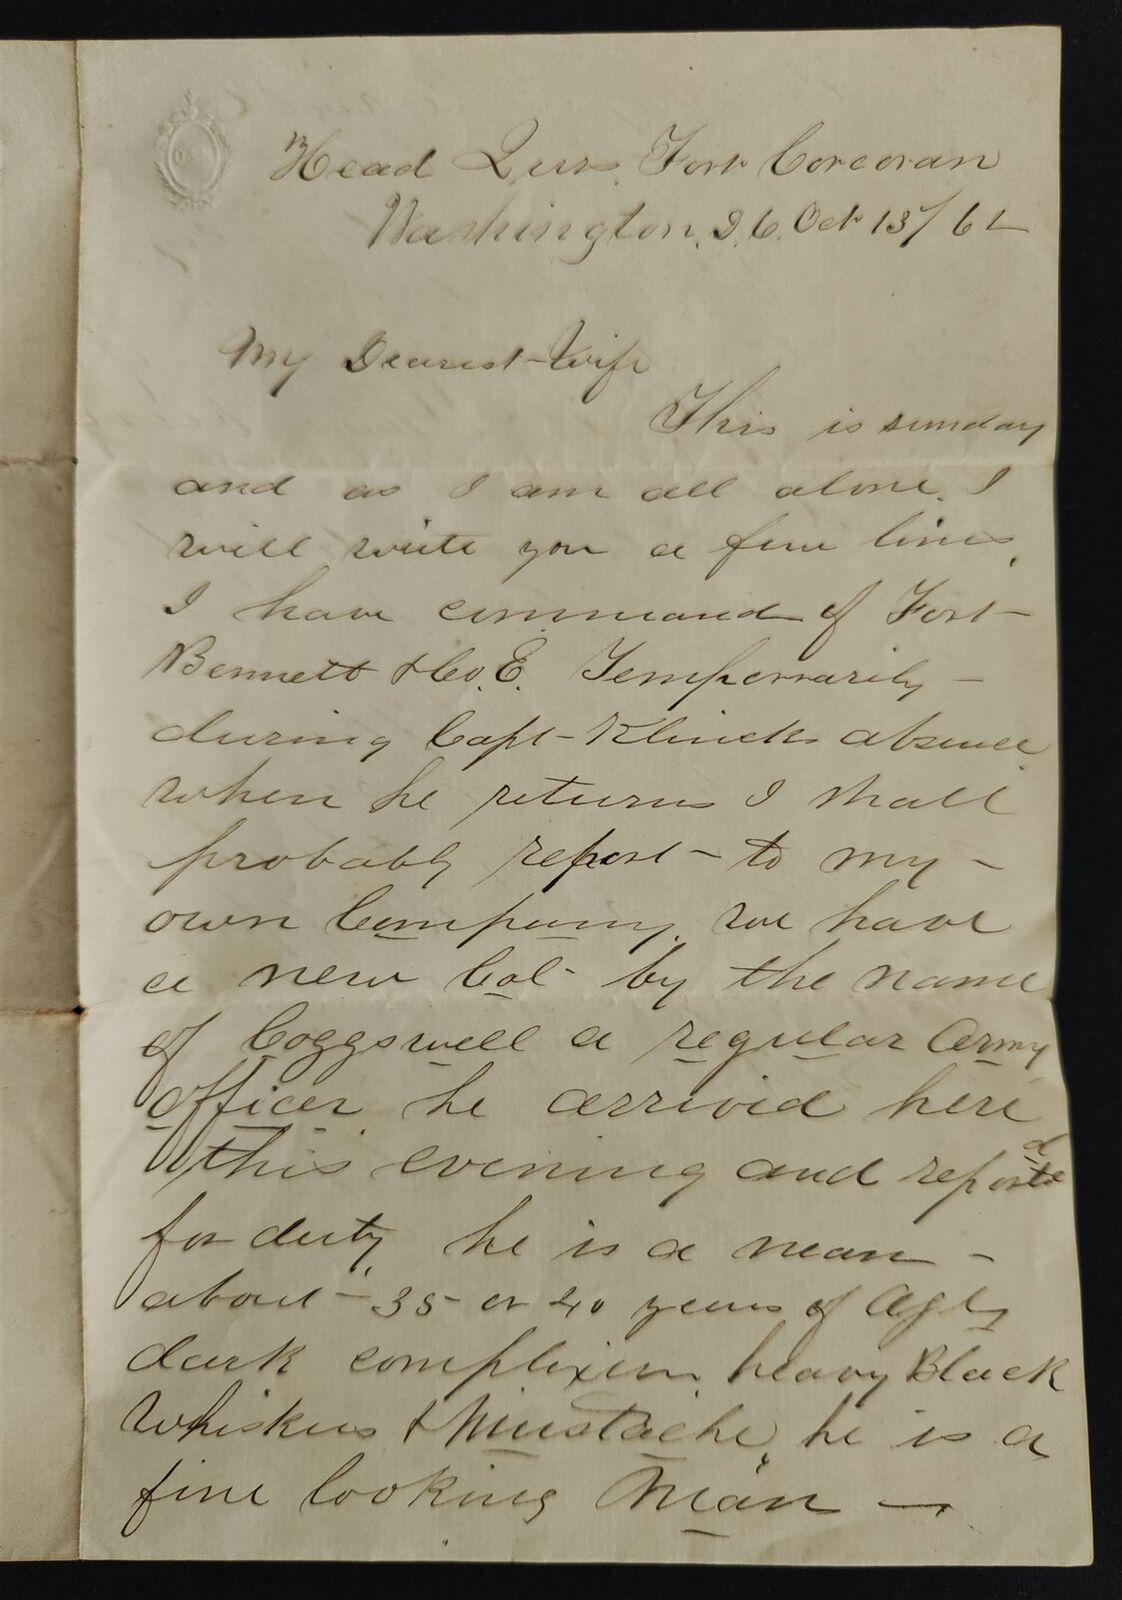 Head Qurs. Fort Corcoran
Washington, D.C. Oct 13/62
My Dearest Wife
This is sunday
and as I am all alone. I
will write you a few lines,
I have command of Fort
Bennett & Co. E. Temporarily -
during Capt - Klincks absence
when he returns I shall
probably report - to my -
own Company, we have
a new Col - by the name
of Coggswell a regular Army
officer, he arrived here
this evening and reported
for duty, he is a man -
about - 35 or 40 years of Age,
dark complexion, heavy Black
whiskers & Mustache, he is a
fine looking Man -